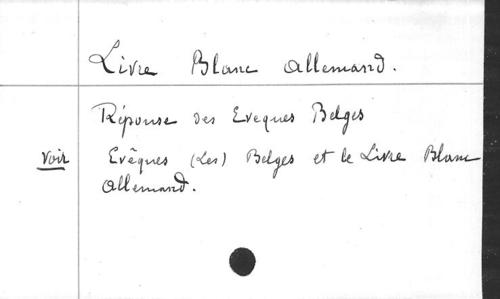 Livre Blanc Allemand.
Réponse des Eveques Belges
voir Evêques (Les) Belges et le Livre Blanc
Allemand.